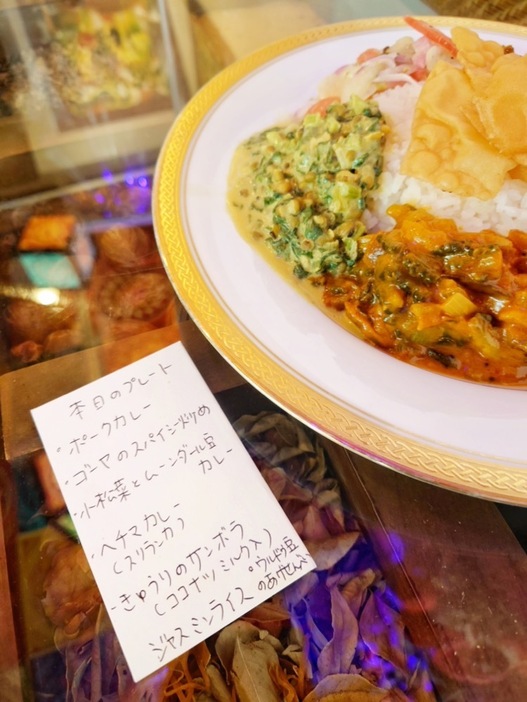 本日のプレート
・ポークカレー
・ゴーヤのスパイシー炒め
・小松菜とムーンダール豆
カレー
・ヘチマカレー
(スリランカ)
・きゅうりのサンボラ
(ココナツミルク入)
ジャスミンライス
・ウルドゥ豆
のあげせんべい